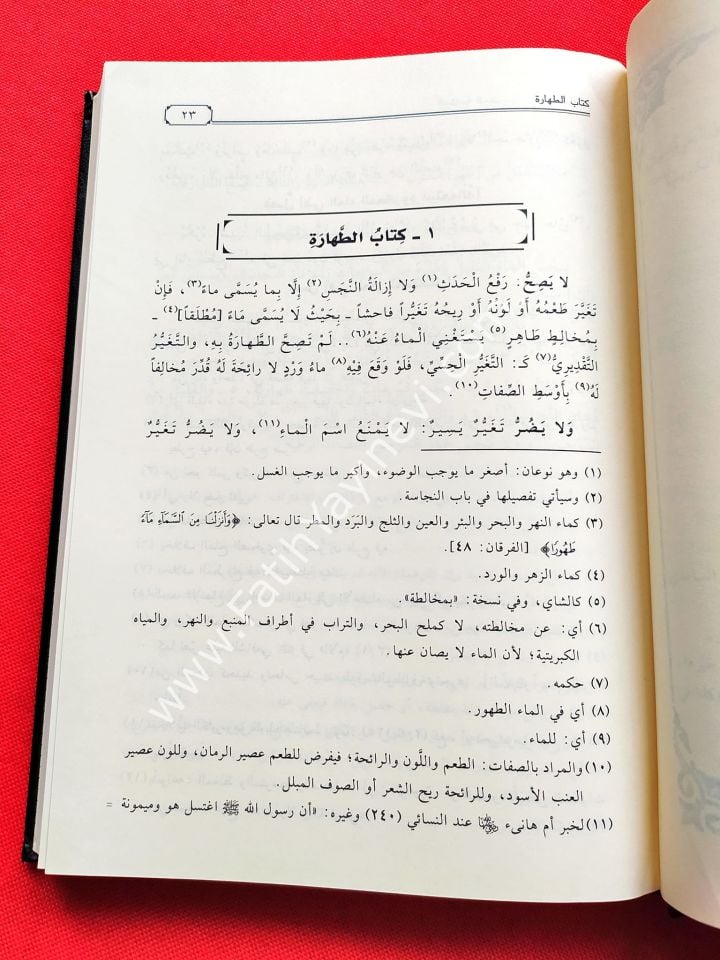 كتاب الطهارة
٢٣
١ - كِتابُ الطَّهارَةِ
لا يَصِحُّ: رَفْعُ الْحَدَثِ(١) وَلا إزالَةُ النَّجَسِ(٢) إلَّا بِما يُسَمَّى ماءً(٣)، فَإنْ
تَغَيَّرَ طَعْمُهُ أَوْ لَوْنُهُ أَوْ رِيحُهُ تَغَيُّراً فاحشاً ـ بِحَيْثُ لَا يُسَمَّى مَاءً [مُطْلَقاً](٤) ـ
بِمُخالِطٍ طَاهِرٍ(٥) يَسْتَغْنِي الْماءُ عَنْهُ(٦).. لَمْ تَصِحَّ الطَّهارَةُ بِهِ، والتَّغَيُّرُ
التَّقْدِيرِيُّ(٧) كَـ: التَّغَيُّرِ الْحِسِّيِّ، فَلَوْ وَقَعَ فِيْهِ(٨) ماءُ وَرْدٍ لا رائحَةَ لَهُ قُدِّرَ مُخالِفاً
لَهُ(٩) بِأَوْسَطِ الصِّفاتِ(١٠).
وَلا يَضُرُّ تَغَيُّرٌ يَسِيرٌ: لا يَمْنَعُ اسْمَ الْماءِ(١١)، وَلا يَضُرُّ تَغَيُّرٌ
(١) وهو نوعان: أصغر ما يوجب الوضوء، وأكبر ما يوجب الغسل.
(٢) وسيأتي تفصيلها في باب النجاسة.
(٣) كماء النهر والبحر والبئر والعين والثلج والبَرَد والمطر قال تعالى: ﴿وَأَنزَلْنَا مِنَ السَّمَآءِ مَآءً
طَهُورًا﴾ [الفرقان: ٤٨].
(٤) كماء الزهر والورد.
(٥) كالشاي، وفي نسخة: «بمخالطة».
(٦) أي: عن مخالطته، لا كملح البحر، والتراب في أطراف المنبع والنهر، والمياه
الكبريتية؛ لأن الماء لا يصان عنها.
(٧) حكمه.
(٨) أي في الماء الطهور.
(٩) أي: للماء.
(١٠) والمراد بالصفات: الطعم واللَّون والرائحة؛ فيفرض للطعم عصير الرمان، وللون عصير
العنب الأسود، وللرائحة ريح الشعر أو الصوف المبلل.
(١١) لخبر أم هانىء ﵂ عند النسائي (٢٤٠) وغيره: «أن رسول الله ﷺ اغتسل هو وميمونة =
www.Fatihyayinevi.com